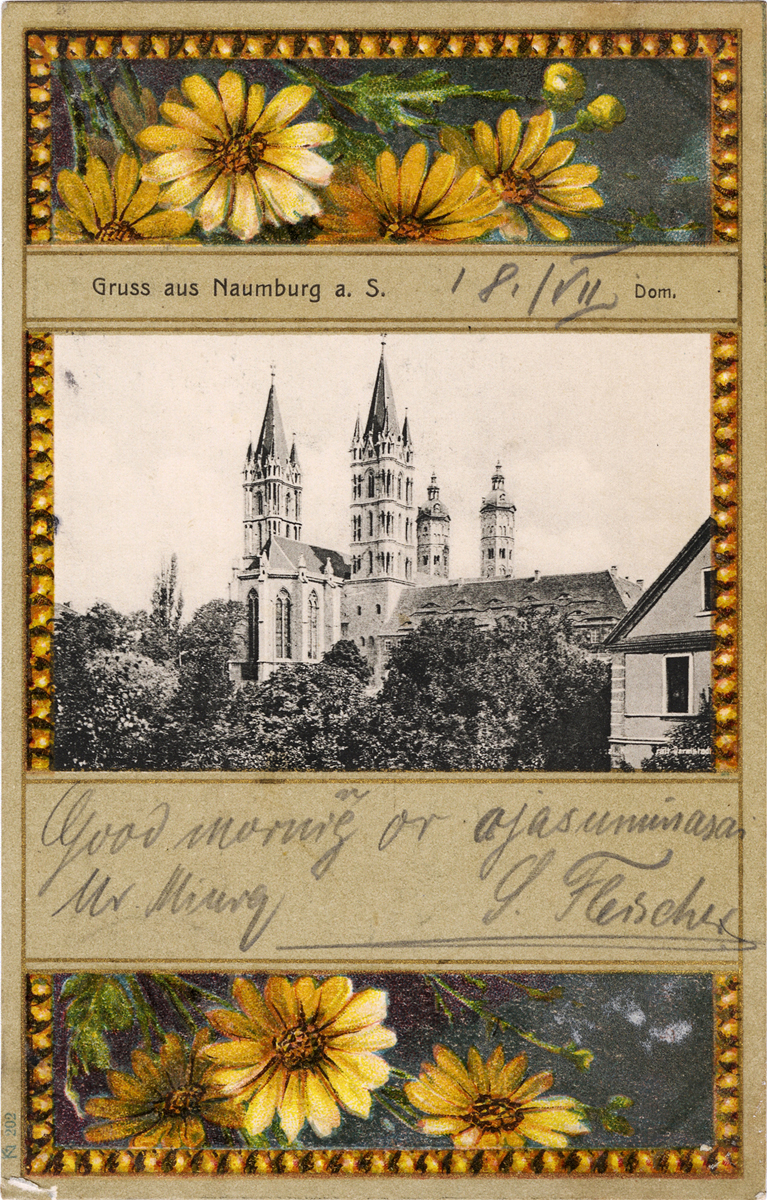 Gruss aus Naumburg a. S. 18./VII Dom.
Good mornig or ojasuminasai
Mr.
S. Fleischer
No. 202